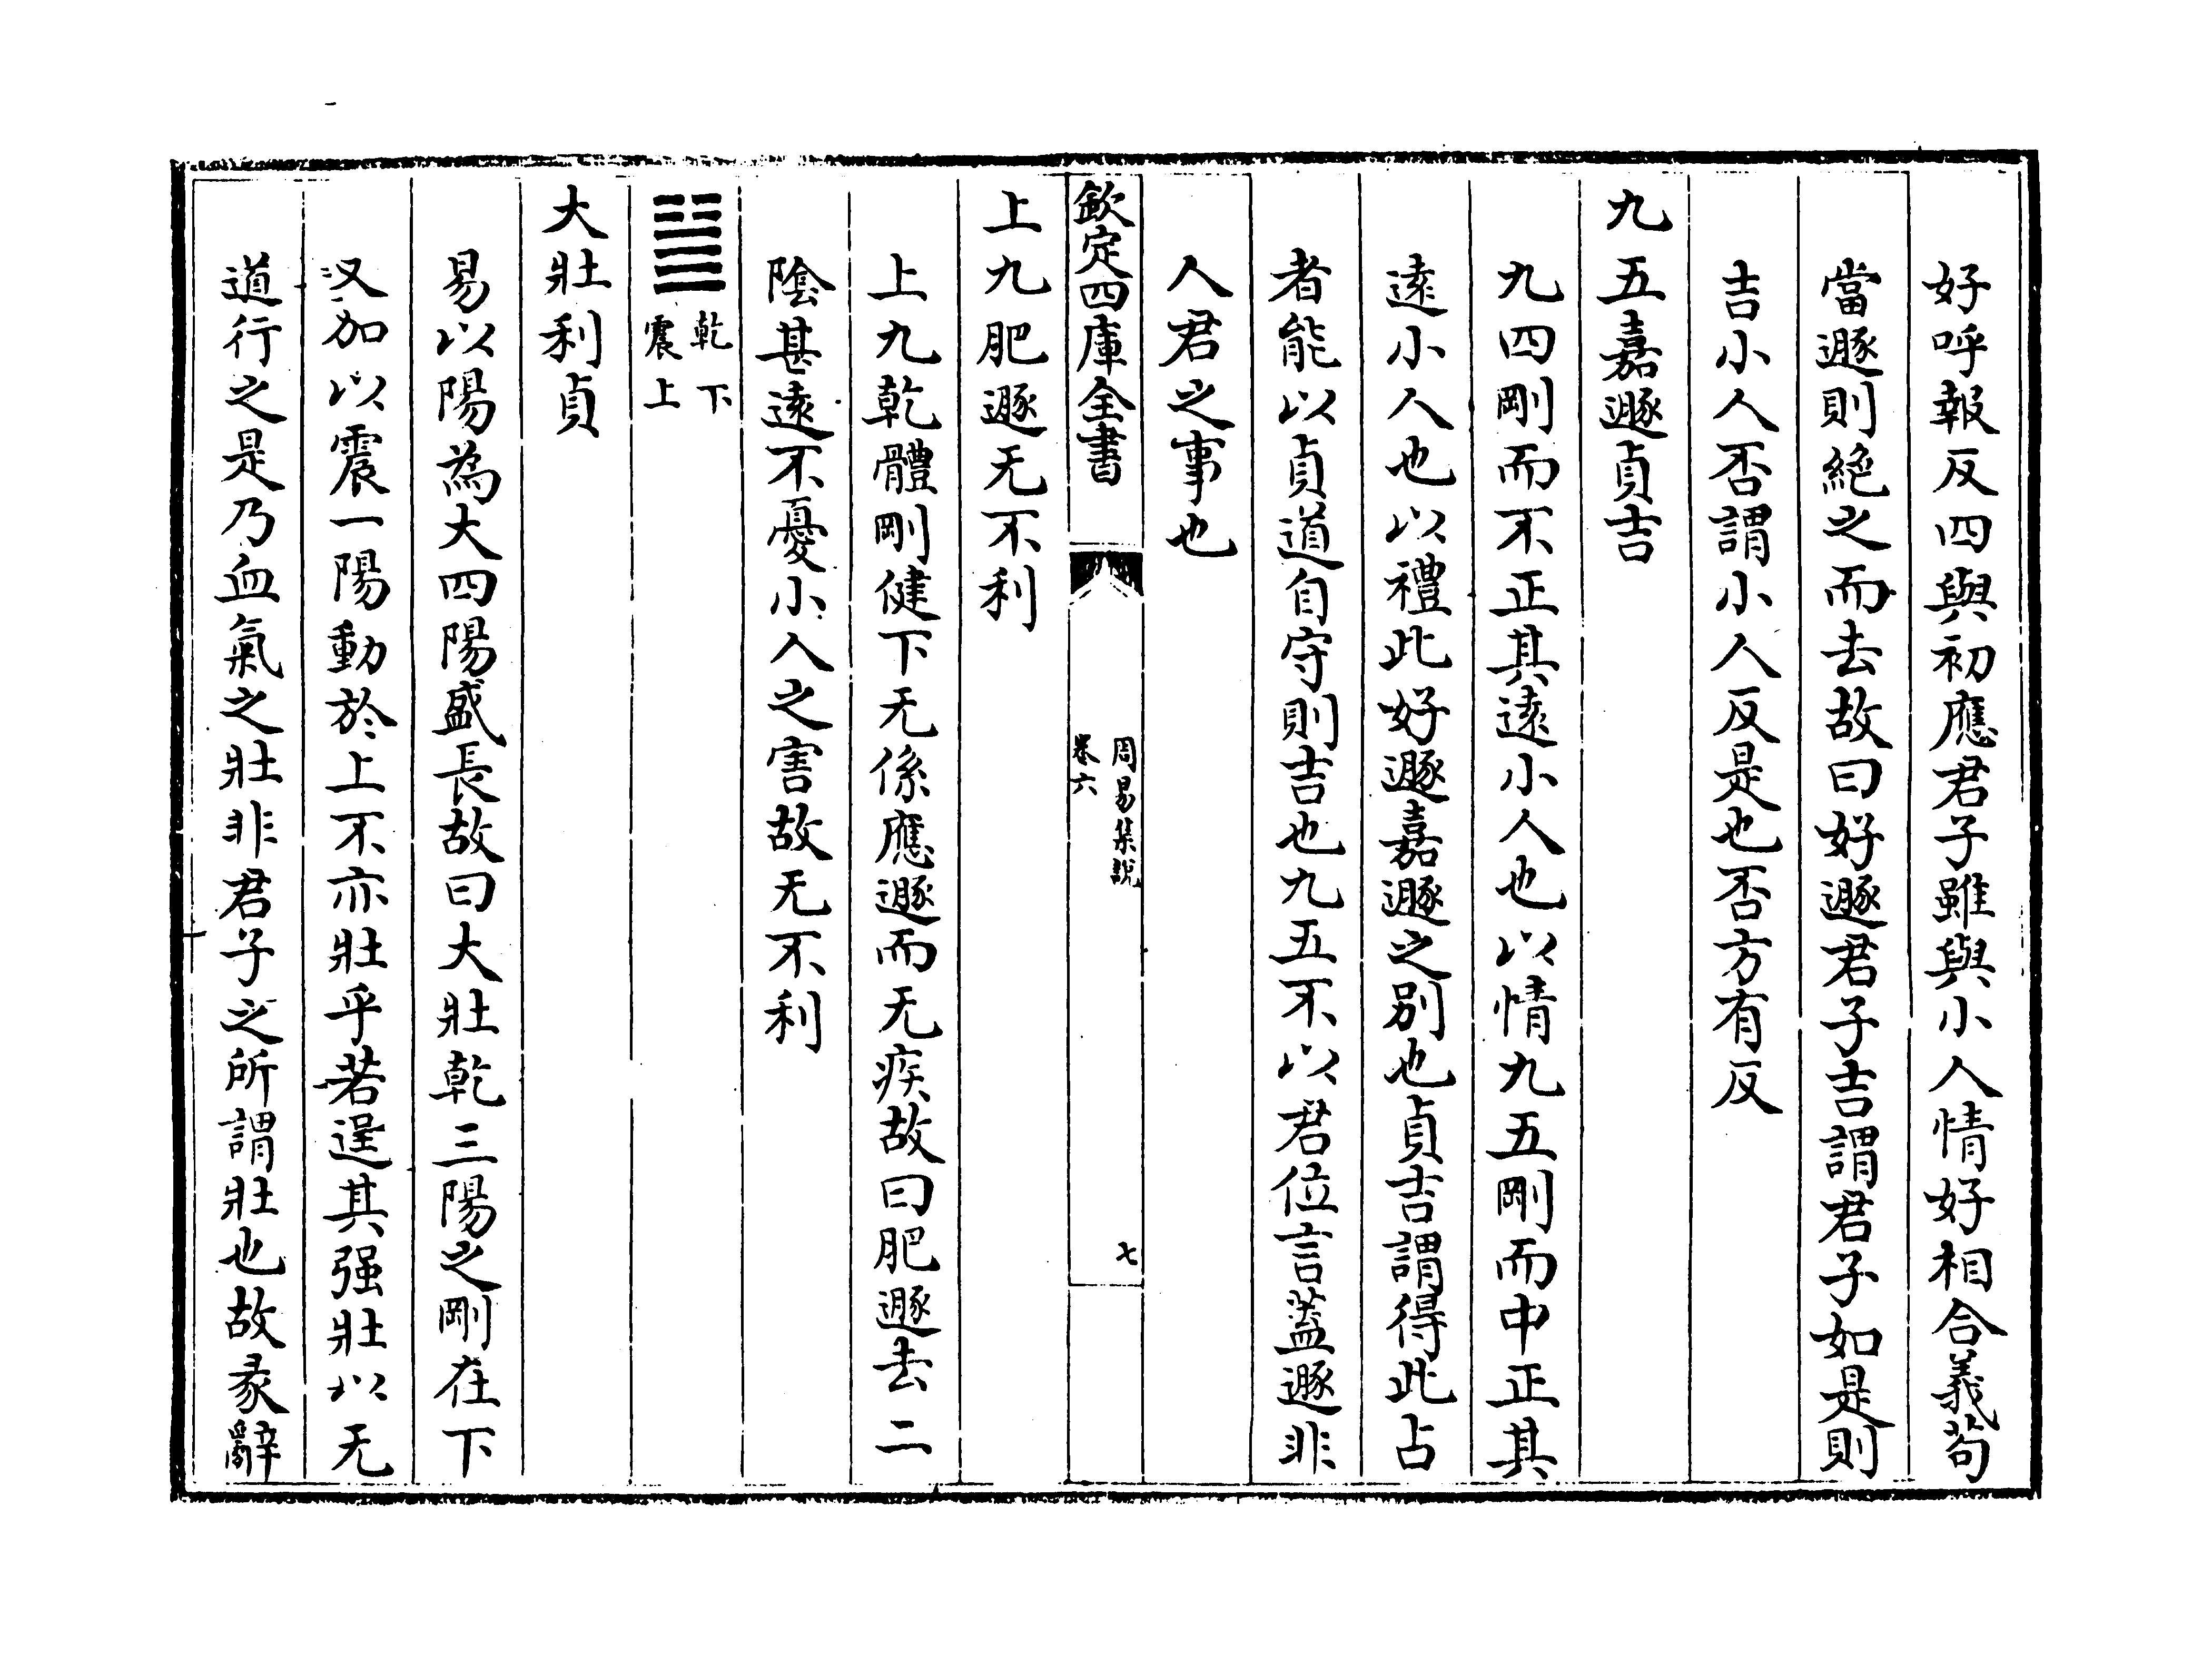 好呼報反四與初應君子雖與小人情好相合義苟
當遯則絶之而去故曰好遯君子吉謂君子如是則
吉小人否謂小人反是也否方有反
九五嘉遯貞吉
九四剛而不正其遠小人也以情九五剛而中正其
遠小人也以禮此好遯嘉遯之别也貞吉謂得此占
者能以貞道自守則吉也九五不以君位言蓋遯非
人君之事也
欽定四庫全書
周易集説
卷六
七
上九肥遯无不利
上九乾體剛健下无係應遯而无疾故曰肥遯去二
陰甚遠不憂小人之害故无不利
䷡
乾下
震上
大壯利貞
易以陽為大四陽盛長故曰大壯乾三陽之剛在下
又加以震一陽動於上不亦壯乎若逞其强壯以无
道行之是乃血氣之壯非君子之所謂壯也故彖辭